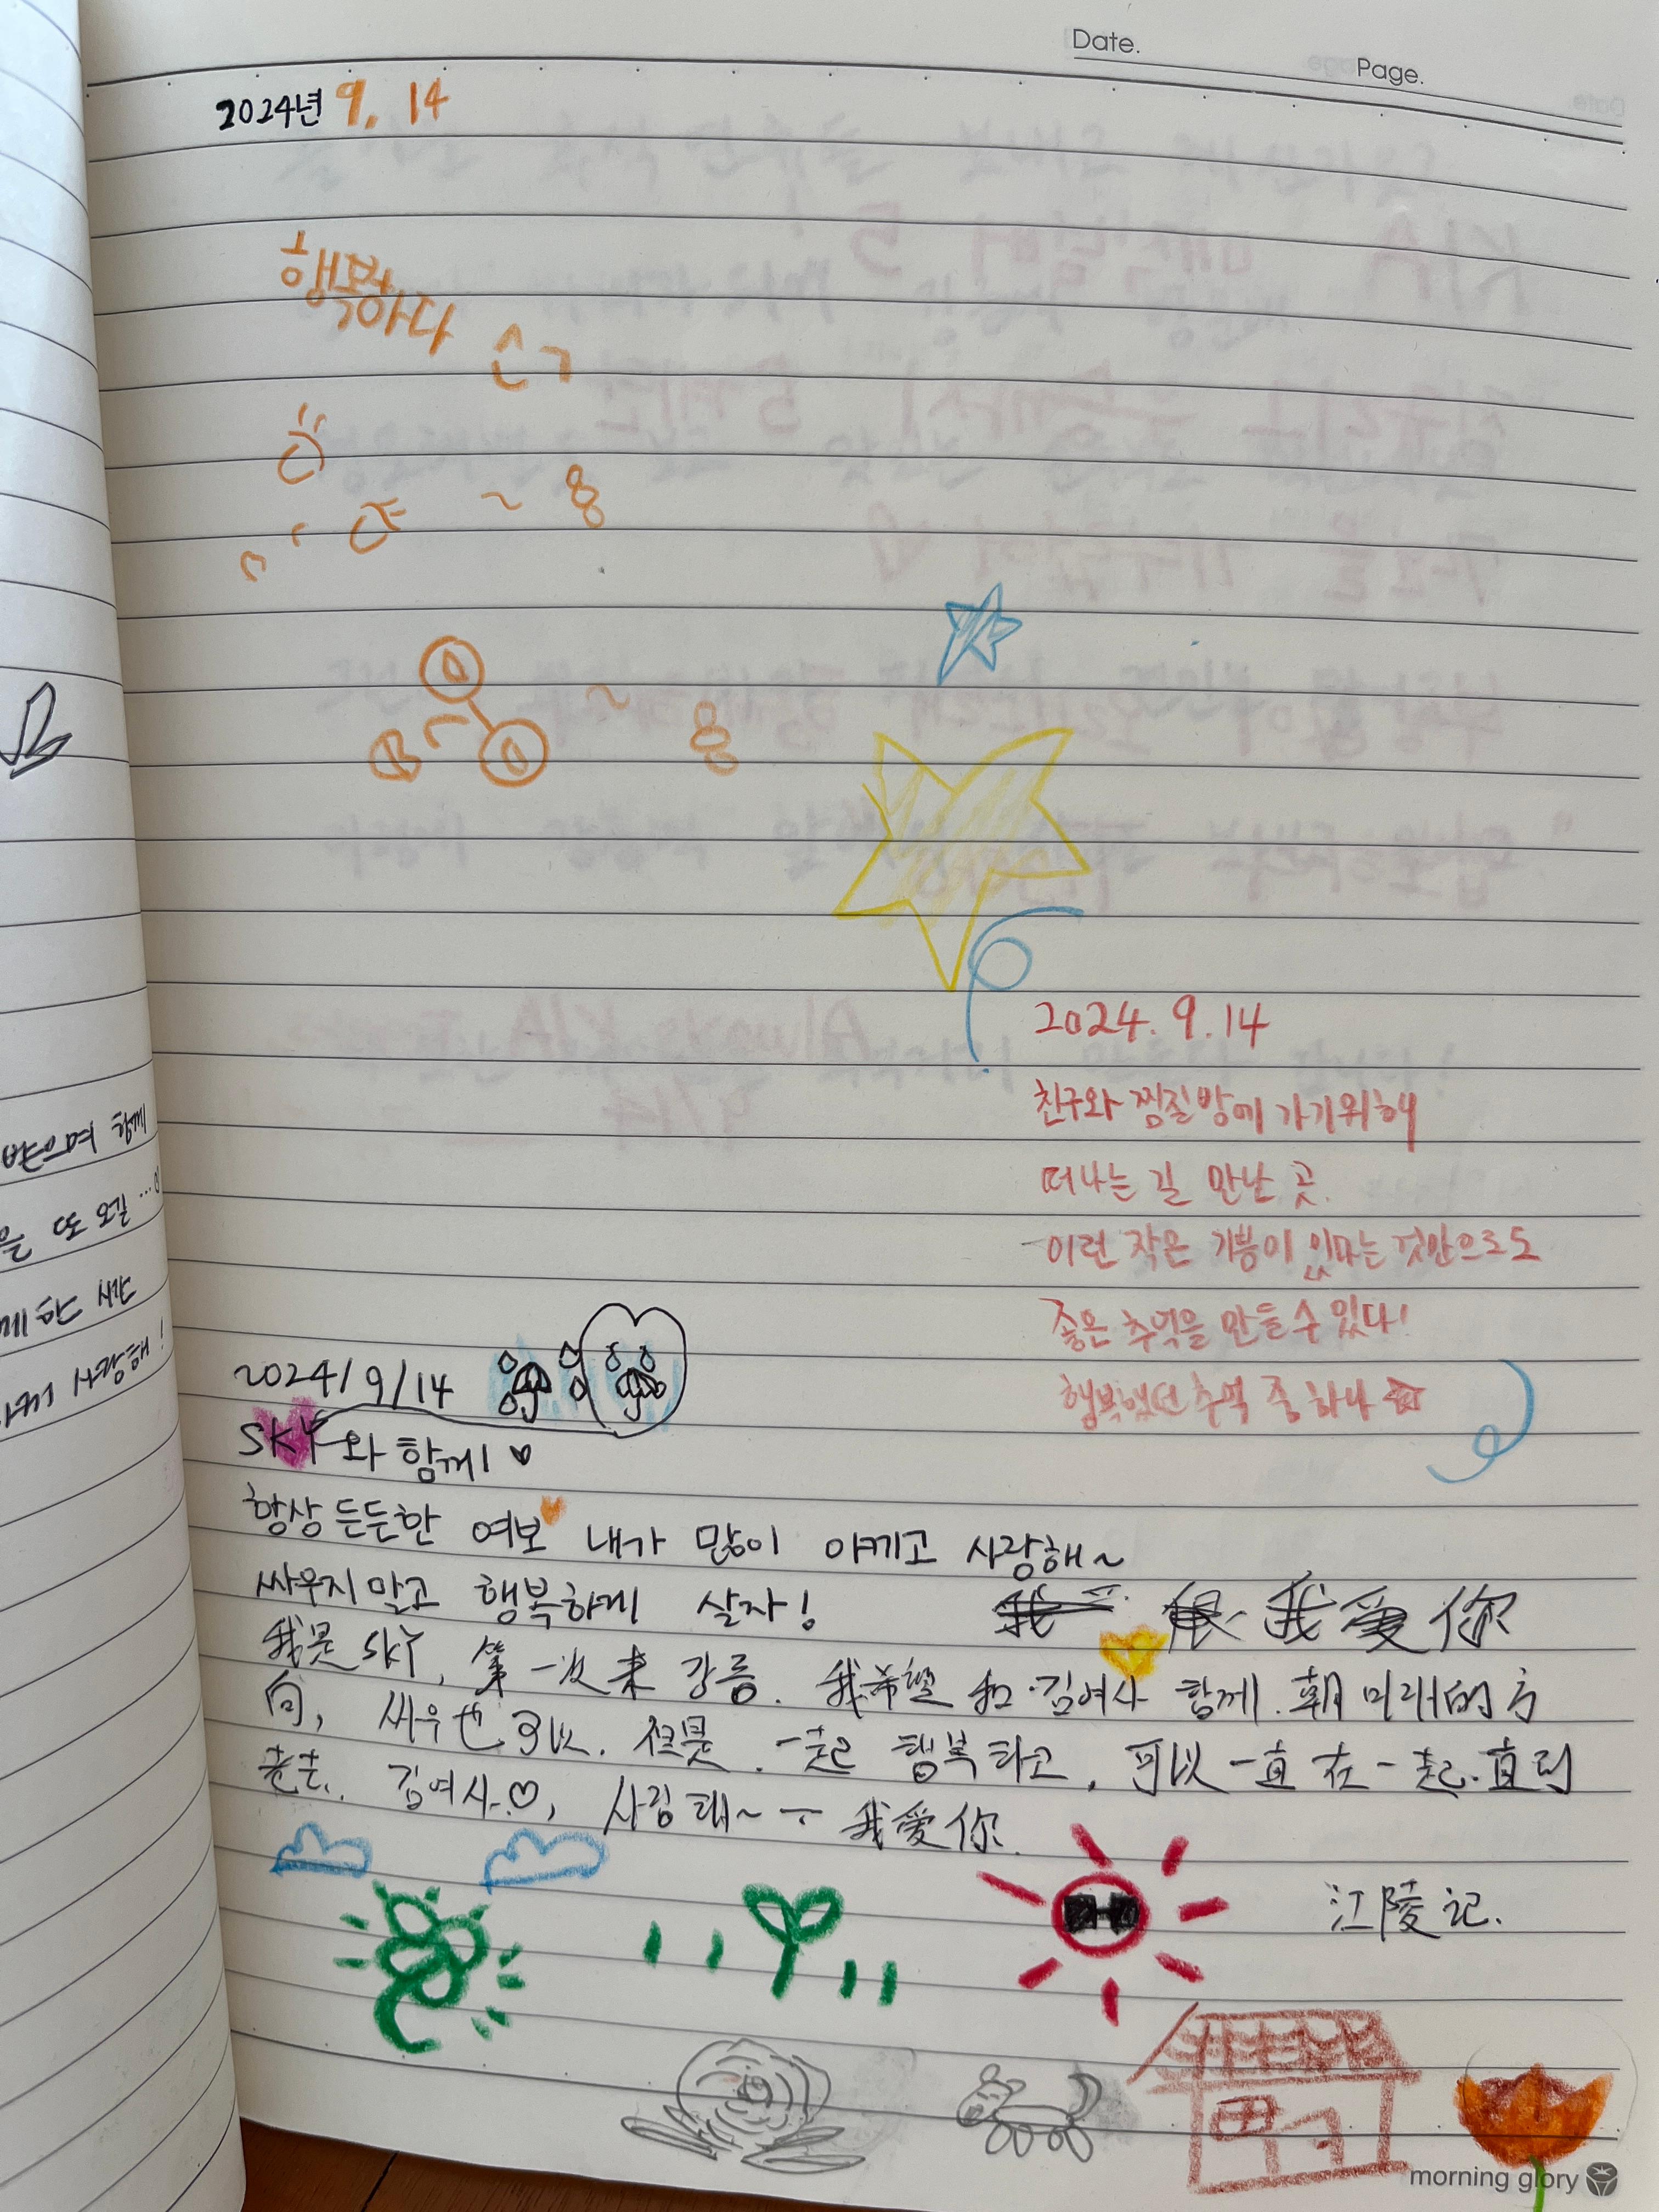 Date.
Page.
2024년 9. 14
행복하다
2024. 9. 14
친구와 찜질방에 가기위해
떠나는 길 만난 곳.
이런 작은 기쁨이 있다는 것만으로도
좋은 추억을 만들 수 있다!
행복했던 추억 중 하나 ☆
2024/9/14
SKY와 함께! ♥
항상 든든한 여보 내가 많이 아끼고 사랑해~
싸우지 말고 행복하게 살자!
我爱你
我是SKY, 第一次来 강릉. 我希望 和 김여사 함께. 朝 미래的方
向, 싸우也可以. 但是. 一起 행복하고, 可以一直在一起. 直到
老去. 김여사♡, 我爱你.
江陵记.
morning glory